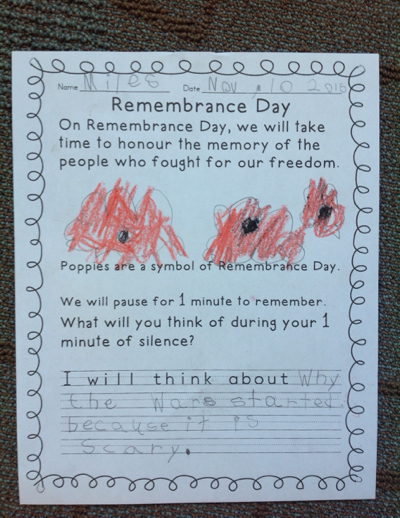 Name Miles Date Nov 10 2015
Remembrance Day
On Remembrance Day, we will take
time to honour the memory of the
people who fought for our freedom.
Poppies are a symbol of Remembrance Day.
We will pause for 1 minute to remember.
What will you think of during your 1
minute of silence?
I will think about Why
the Wars started
because it is
scary.